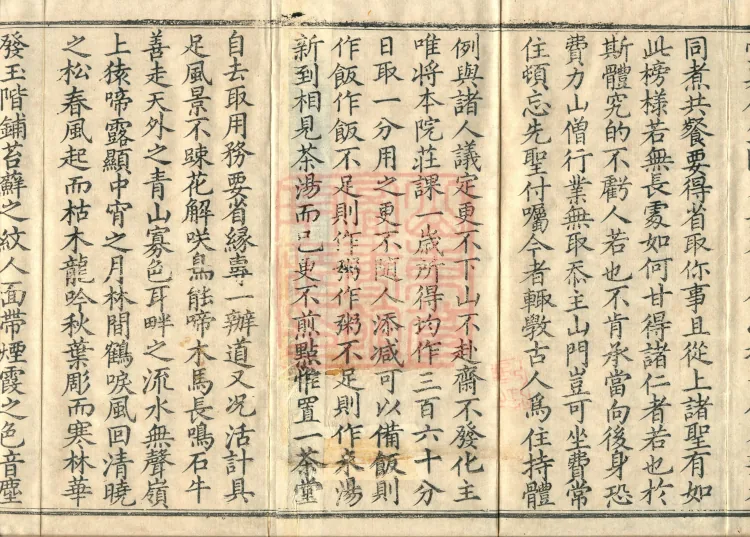 同煮共餐要得省取你事且從上諸聖有如
此榜樣若無長處如何甘得諸仁者若也於
斯體究的不虧人若也不肯承當向後身恐
費力山僧行業無取忝主山門豈可坐費常
住頓忘先聖付囑今者輙斆古人爲住持體
例與諸人議定更不下山不赴齋不發化主
唯將本院荘課一歲所得均作三百六十分
日取一分用之更不隨人添减可以備飯則
作飯作飯不足則作粥作粥不足則作米湯
新到相見茶湯而已更不煎點惟置一茶堂
自去取用務要省緣専一辦道又况活計具
足風景不踈花解咲鳥能啼木馬長鳴石牛
善走天外之青山寡色耳畔之流水無聲嶺
上猿啼露顯中宵之月林間鶴唳風回清曉
之松春風起而枯木龍吟秋葉彫而寒林華
發玉階鋪苔蘚之紋人面帶煙霞之色音塵